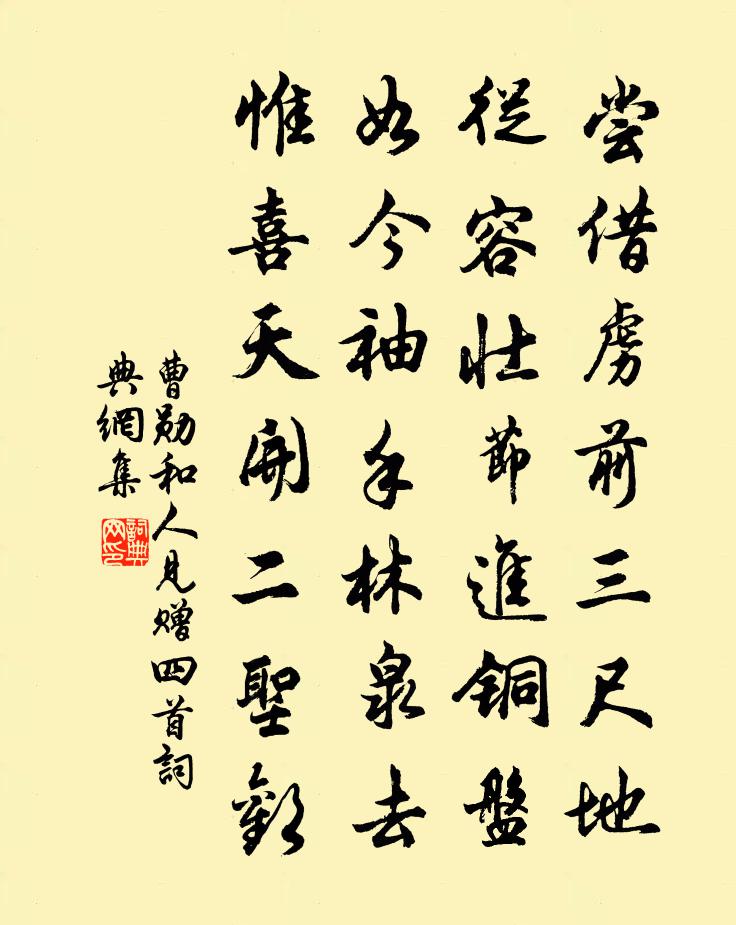 尝借虏前三尺地
從容壮節進銅盤
如今袖手林泉去
惟喜天開二聖歡
曹勋和人見赠四首詞
典網集
詞典
网印